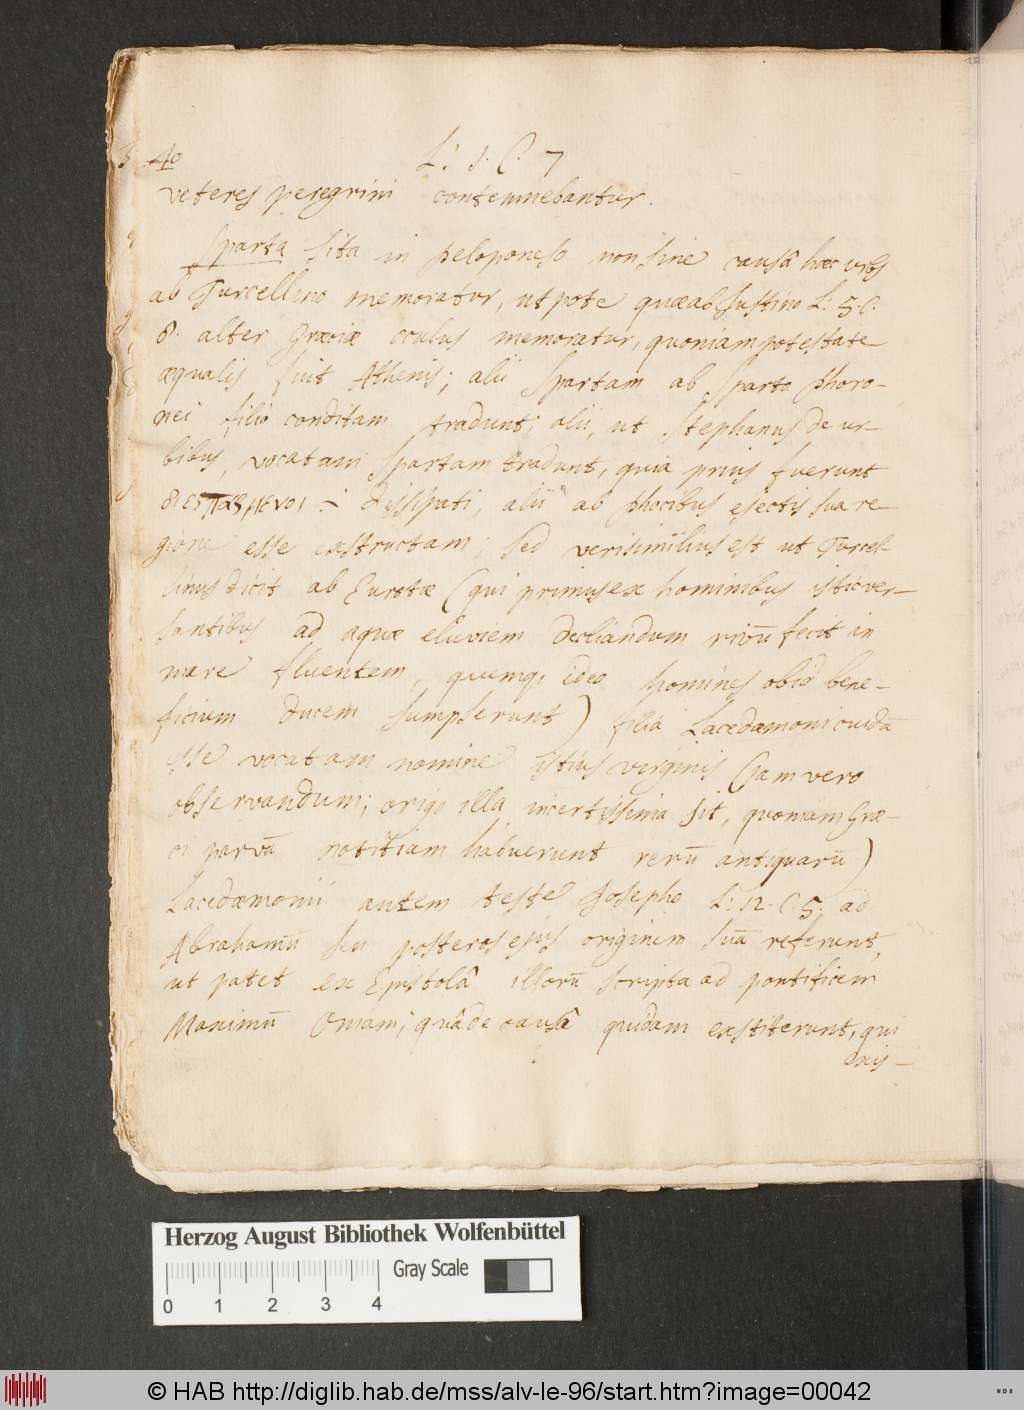 40
L: 1. C. 7
veteres peregrini contemnebantur.
Sparta sita in peloponeso non sine causâ hæc urbs
ab Turcellino memoratur, utpote quæ ab Justino L: 5 C.
8. alter Græciæ oculus memoratur, quoniam potestate
æqualis fuit Athenis; alii Spartam ab Sparto Phoro-
nei filio conditam tradunt; alii, ut Stephanus de ur-
bibus, vocatam Spartam tradunt, quia prius fuerunt
διεσπαρμενοι ∸ dissipati, alii ab phocibus ejectis sua re-
gione esse exstructam; sed verisimilius est ut Turcel-
linus dicit ab Eurotæ (qui primus ex hominibus istic ver-
santibus ad aquæ eluviem decliandum rivū fecit in
mare fluentem, quemq; ideo homines ob id bene-
ficium ducem sumpserunt) filia Lacedæmoni cuidā
esse vocatam nomine istius virginis (jam vero
observandum; origo illa incertissima sit, quoniam Græ-
ci parvā notitiam habuerunt rerū antiquarū)
Lacedæmonii autem teste Josepho L: 12. C. 5. ad
Abrahamū seu posteros ejus originem suā referunt,
ut patet ex Epistolâ illorū scripta ad pontificem
Maximū Oniam; quâ de causâ quidam exstiterunt, qui
exis-
Herzog August Bibliothek Wolfenbüttel
Gray Scale
0 1 2 3 4
© HAB http://diglib.hab.de/mss/alv-le-96/start.htm?image=00042